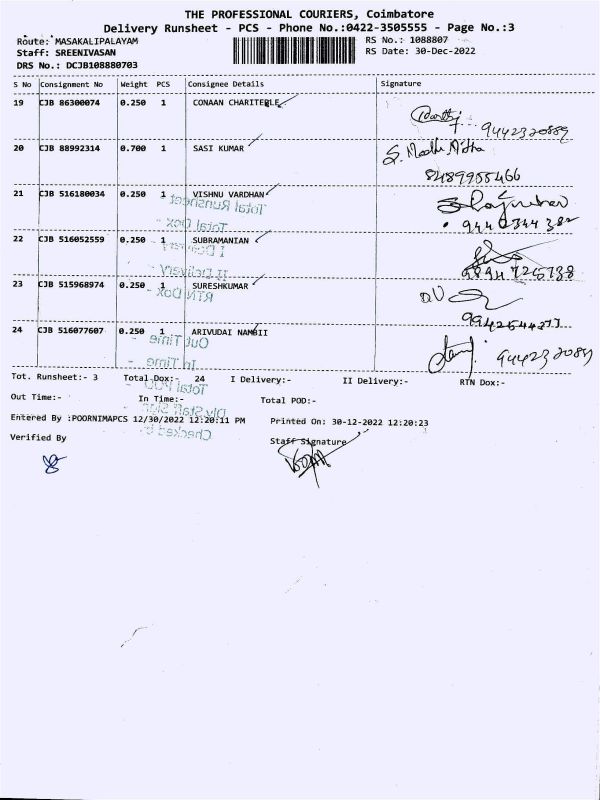 THE PROFESSIONAL COURIERS, Coimbatore
Delivery Runsheet - PCS - Phone No.:0422-3505555 - Page No.:3
Route: MASAKALIPALAYAM
RS No.: 1088807
Staff: SREENIVASAN
RS Date: 30-Dec-2022
DRS No.: DCJB108880703
S No Consignment No Weight PCS Consignee Details Signature
19 CJB 86300074 0.250 1 CONAAN CHARITEBLE
9442320889
20 CJB 88992314 0.700 1 SASI KUMAR
8489955466
21 CJB 516180034 0.250 1 VISHNU VARDHAN
Total Runsheet
Total Dox -
9442344382
22 CJB 516052559 0.250 1 SUBRAMANIAN
I Delivery -
II Delivery -
9894725738
23 CJB 515968974 0.250 1 SURESHKUMAR
RTN Dox -
24 CJB 516077607 0.250 1 ARIVUDAI NAMBII
Out Time -
In Time -
Tot. Runsheet:- 3 Total Dox:- 24 I Delivery:- II Delivery:- RTN Dox:-
Total POD -
Out Time:- In Time:- Total POD:-
Dly Staff Sign
Entered By :POORNIMAPCS 12/30/2022 12:20:11 PM Printed On: 30-12-2022 12:20:23
Checked by -
Verified By Staff Signature